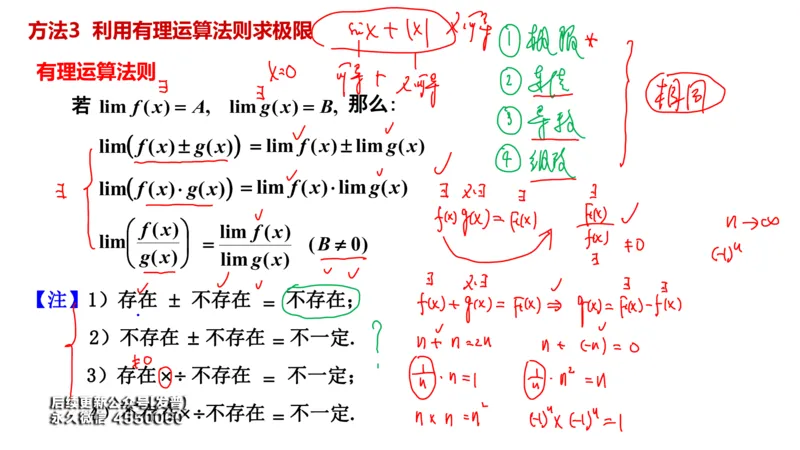 方法3 利用有理运算法则求极限
sinx + |x| 不可导
x=0 可导 + 不可导
① 极限 *
② 连续
③ 导数
④ 级数
相同
有理运算法则
∃ ∃
若 lim f(x) = A, lim g(x) = B, 那么:
lim(f(x) ± g(x)) = lim f(x) ± lim g(x)
∃ lim(f(x)·g(x)) = lim f(x)·lim g(x)
lim(f(x)/g(x)) = lim f(x)/lim g(x) (B ≠ 0)
∃ 不∃ ∃
f(x) g(x) = F(x)
∃ F(x)/f(x) ≠0 ∃
n→∞
(-1)^n
【注】1）存在 ± 不存在 = 不存在;
∃ 不∃ ∃ ∃
f(x) + g(x) = F(x) ⇒ g(x) = F(x) - f(x)
2）不存在 ± 不存在 = 不一定. ?
n + n = 2n n + (-n) = 0
≠0
3）存在 × ÷ 不存在 = 不一定;
1/n · n = 1 1/n · n² = n
4）不存在×÷不存在 = 不一定.
n × n = n² (-1)^n × (-1)^n = 1
后续更新公众号[发普]
永久微信 4950060